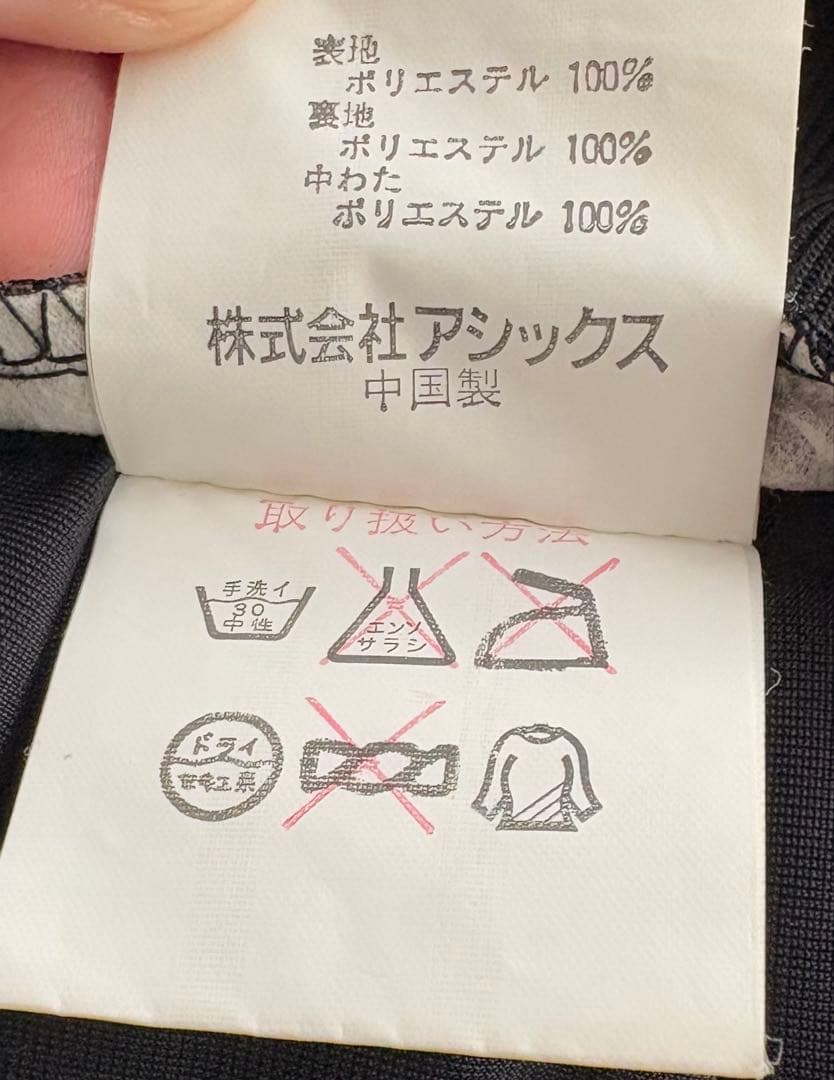 表地
ポリエステル 100%
裏地
ポリエステル 100%
中わた
ポリエステル 100%
株式会社アシックス
中国製
取り扱い方法
手洗イ
30
中性
エンソ
サラシ
ドライ
セキユ系